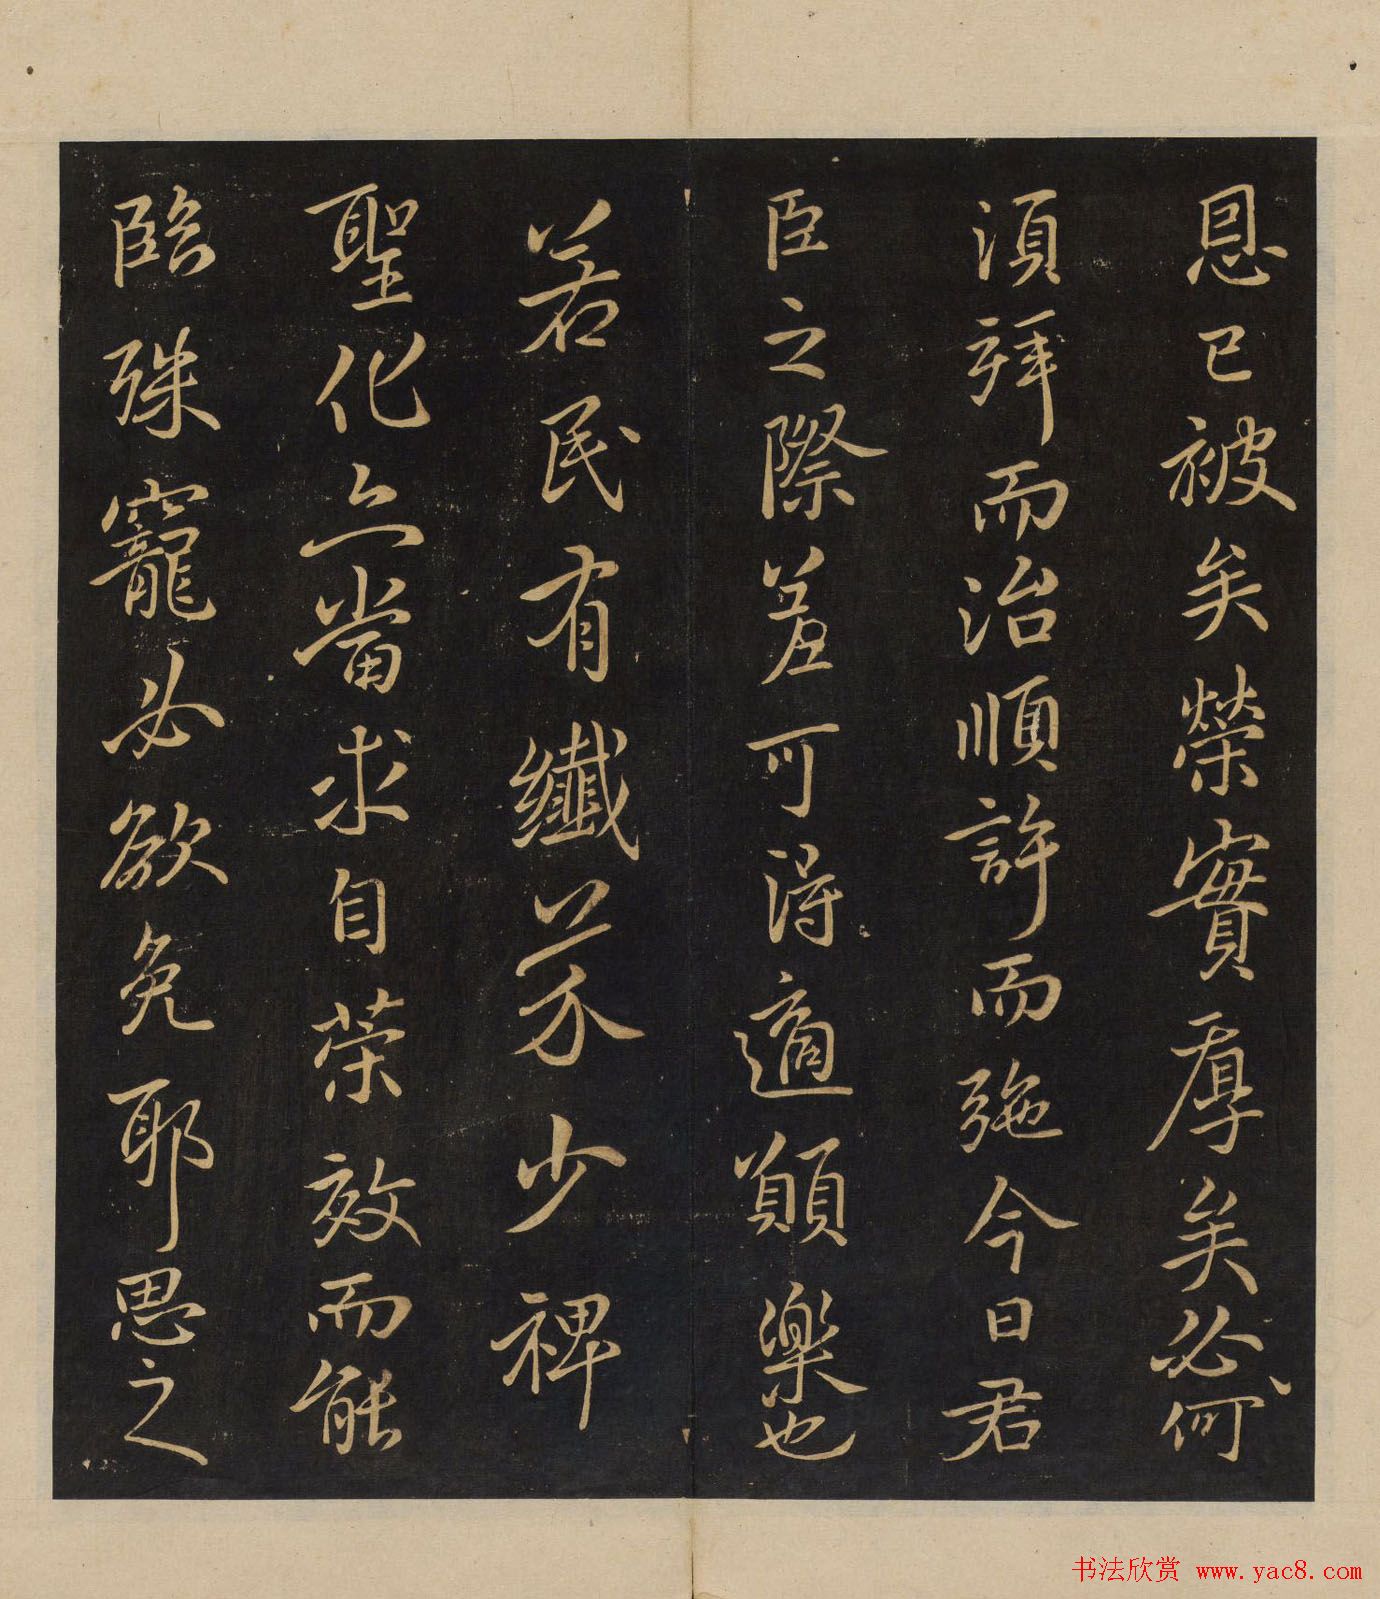 恩已被矣榮實厚矣必何
須拜而治順許而弛今日君
臣之際差可得適願樂也
若民有纖芥少裨
聖化亦當求自榮效而能
臨殊寵必欲免耶思之
书法欣赏 www.yac8.com